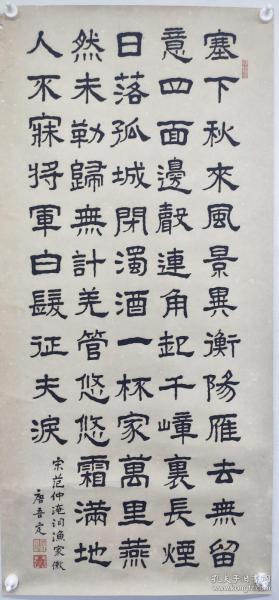 塞下秋來風景異衡陽雁去無留
意四面邊聲連角起千嶂裏長煙
日落孤城閉濁酒一杯家萬里燕
然未勒歸無計羌管悠悠霜滿地
人不寐將軍白髮征夫淚
宋范仲淹词漁家傲